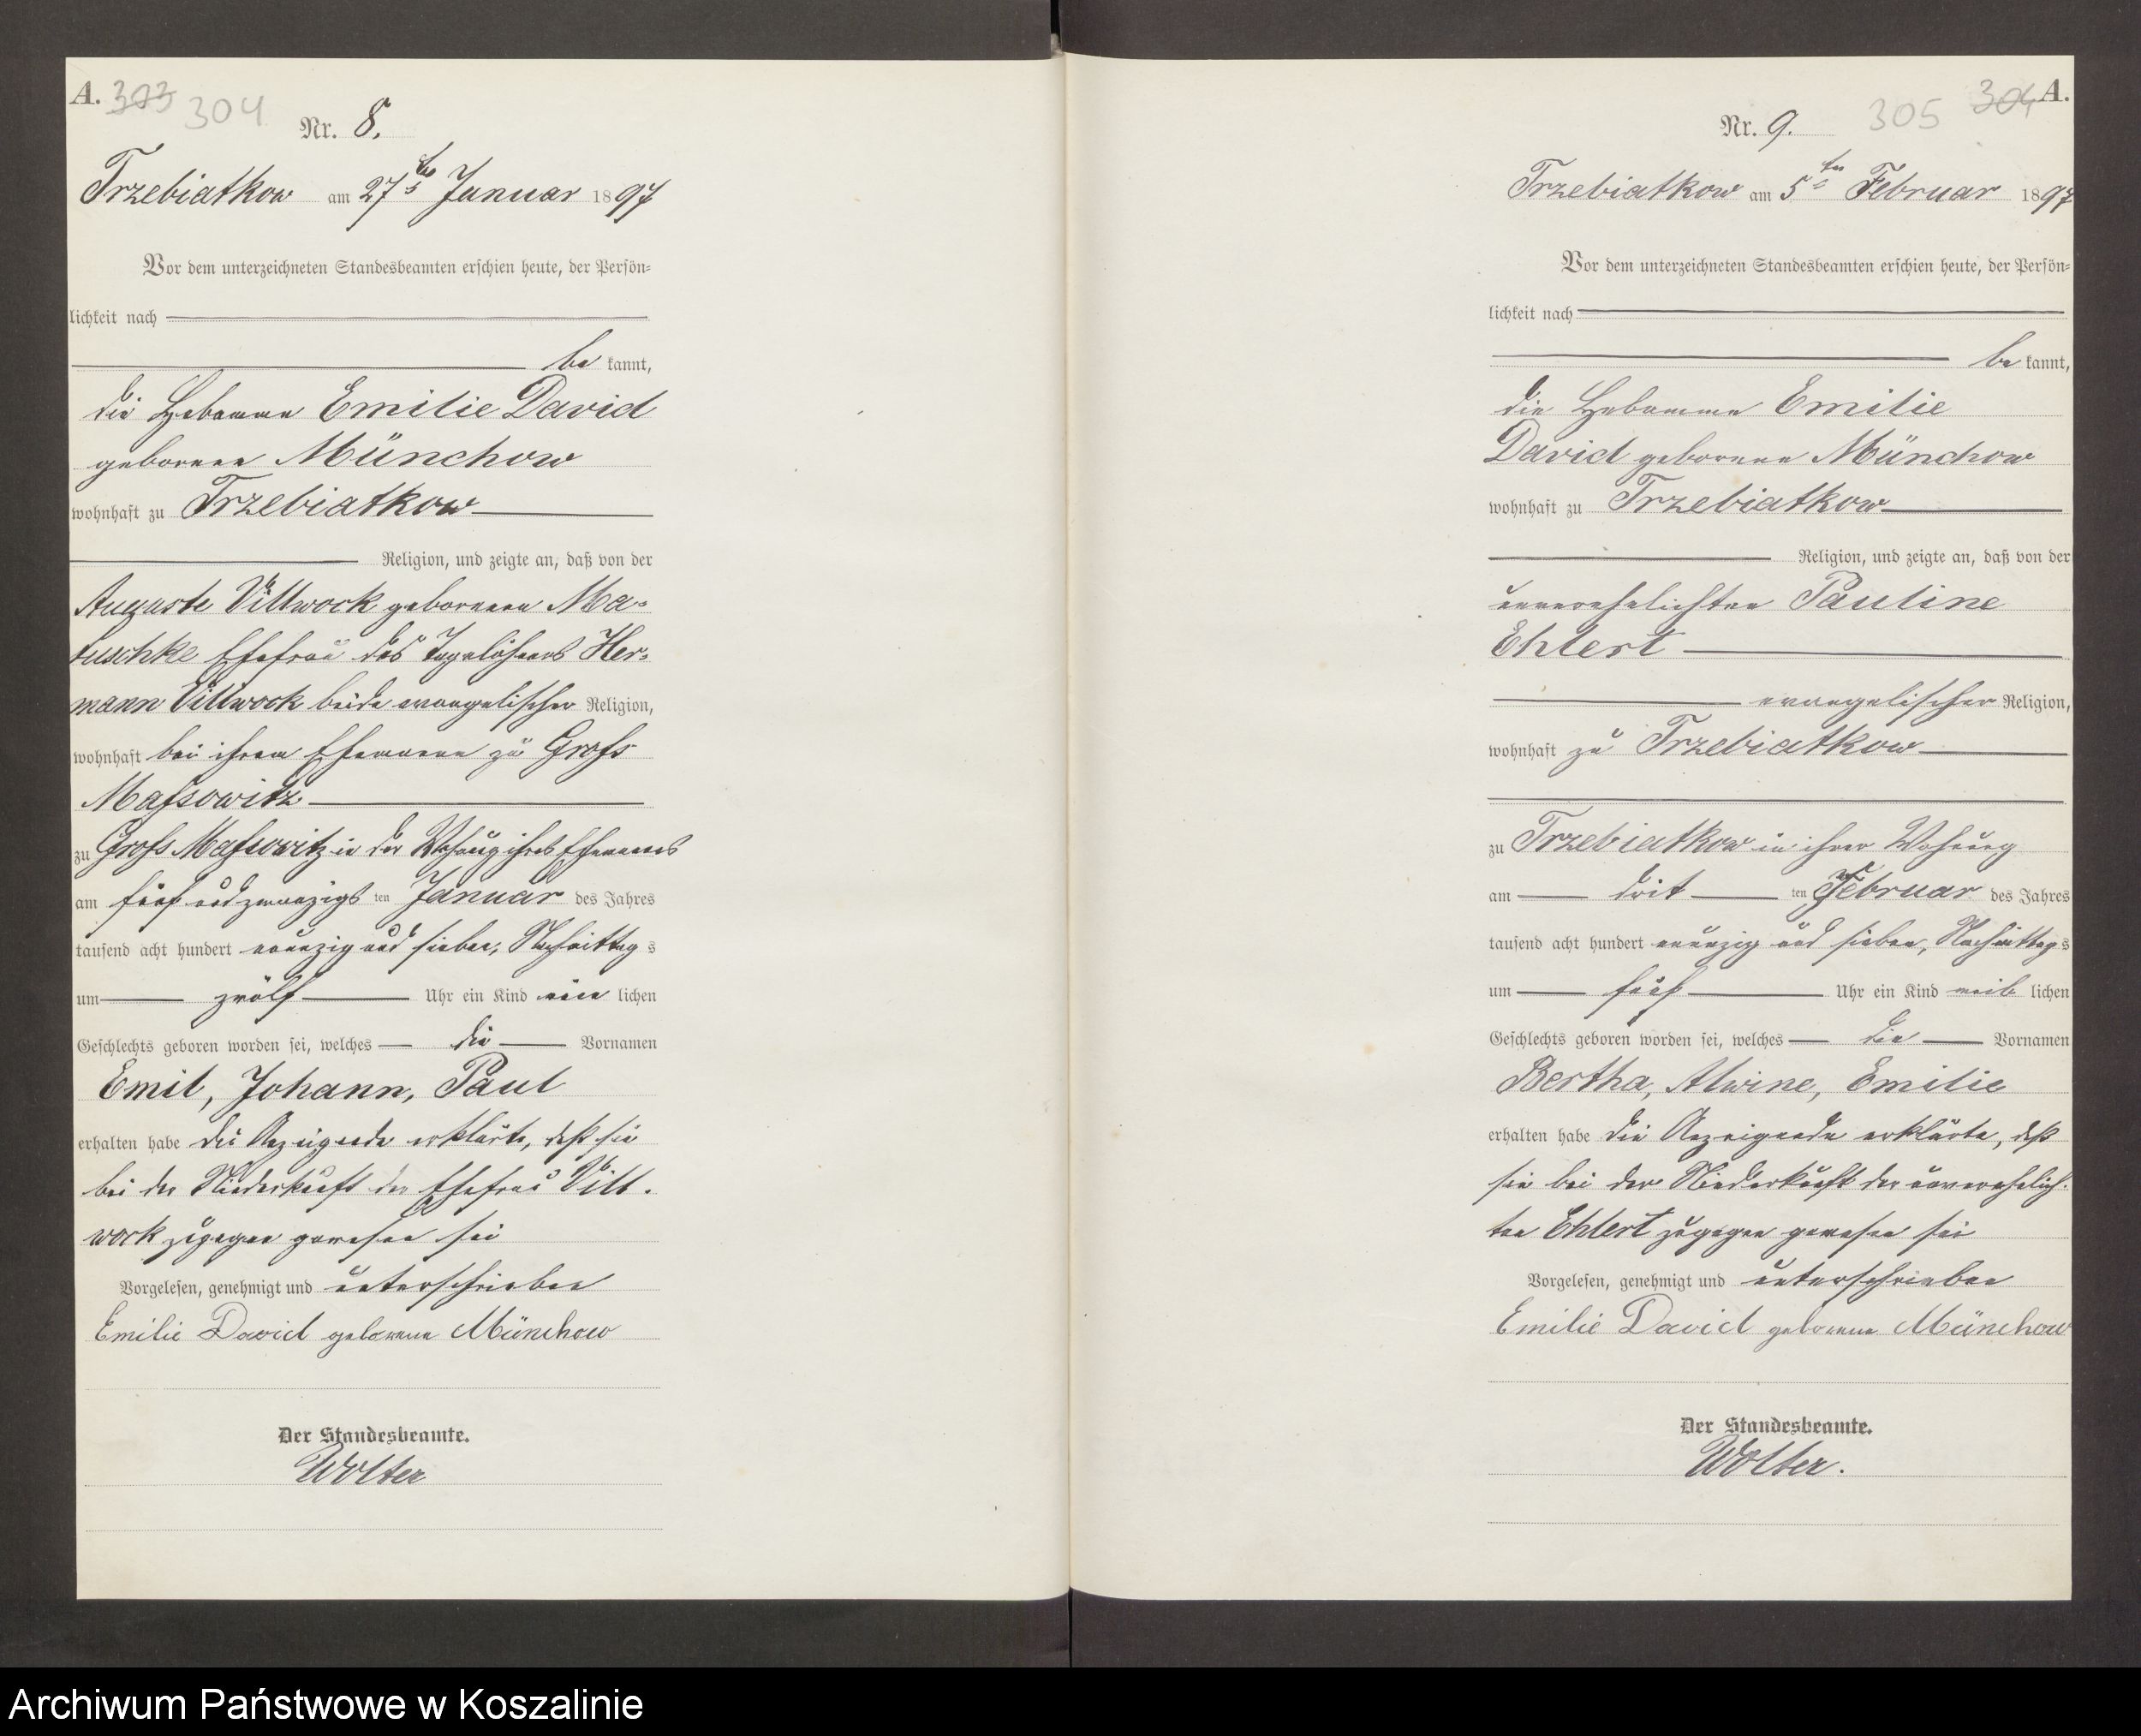 A. 303 304
Nr. 8.
Trzebiatkow am 27ten Januar 1897
Vor dem unterzeichneten Standesbeamten erschien heute, der Persön-
lichkeit nach
be kannt,
die Hebamme Emilie David
geborene Münchow
wohnhaft zu Trzebiatkow
Religion, und zeigte an, daß von der
Auguste Villwock geborenen Ma-
tuschke Ehefrau des Tagelöhners Her-
mann Villwock beide evangelischer Religion,
wohnhaft bei ihrem Ehemanne zu Groß
Maßowitz
zu Groß Maßowitz in der Wohnung ihres Ehemannes
am fünf und zwanzigs ten Januar des Jahres
tausend acht hundert neunzig und sieben, Nachmittag s
um zwölf Uhr ein Kind männ lichen
Geschlechts geboren worden sei, welches die Vornamen
Emil, Johann, Paul
erhalten habe die Anzeigende erklärte, daß sie
bei der Niederkunft der Ehefrau Vill-
wock zugegen gewesen sei
Vorgelesen, genehmigt und unterschrieben
Emilie David geborene Münchow
Der Standesbeamte.
Wolter
305 304 A.
Nr. 9.
Trzebiatkow am 5ten Februar 1897
Vor dem unterzeichneten Standesbeamten erschien heute, der Persön-
lichkeit nach
be kannt,
die Hebamme Emilie
David geborene Münchow
wohnhaft zu Trzebiatkow
Religion, und zeigte an, daß von der
unverehelichten Pauline
Ehlert
evangelischer Religion,
wohnhaft zu Trzebiatkow
zu Trzebiatkow in ihrer Wohnung
am drit ten Februar des Jahres
tausend acht hundert neunzig und sieben, Nachmittag s
um fünf Uhr ein Kind weib lichen
Geschlechts geboren worden sei, welches die Vornamen
Bertha, Alwine, Emilie
erhalten habe die Anzeigende erklärte, daß
sie bei der Niederkunft der unverehelich-
ten Ehlert zugegen gewesen sei
Vorgelesen, genehmigt und unterschrieben
Emilie David geborene Münchow
Der Standesbeamte.
Wolter.
Archiwum Państwowe w Koszalinie